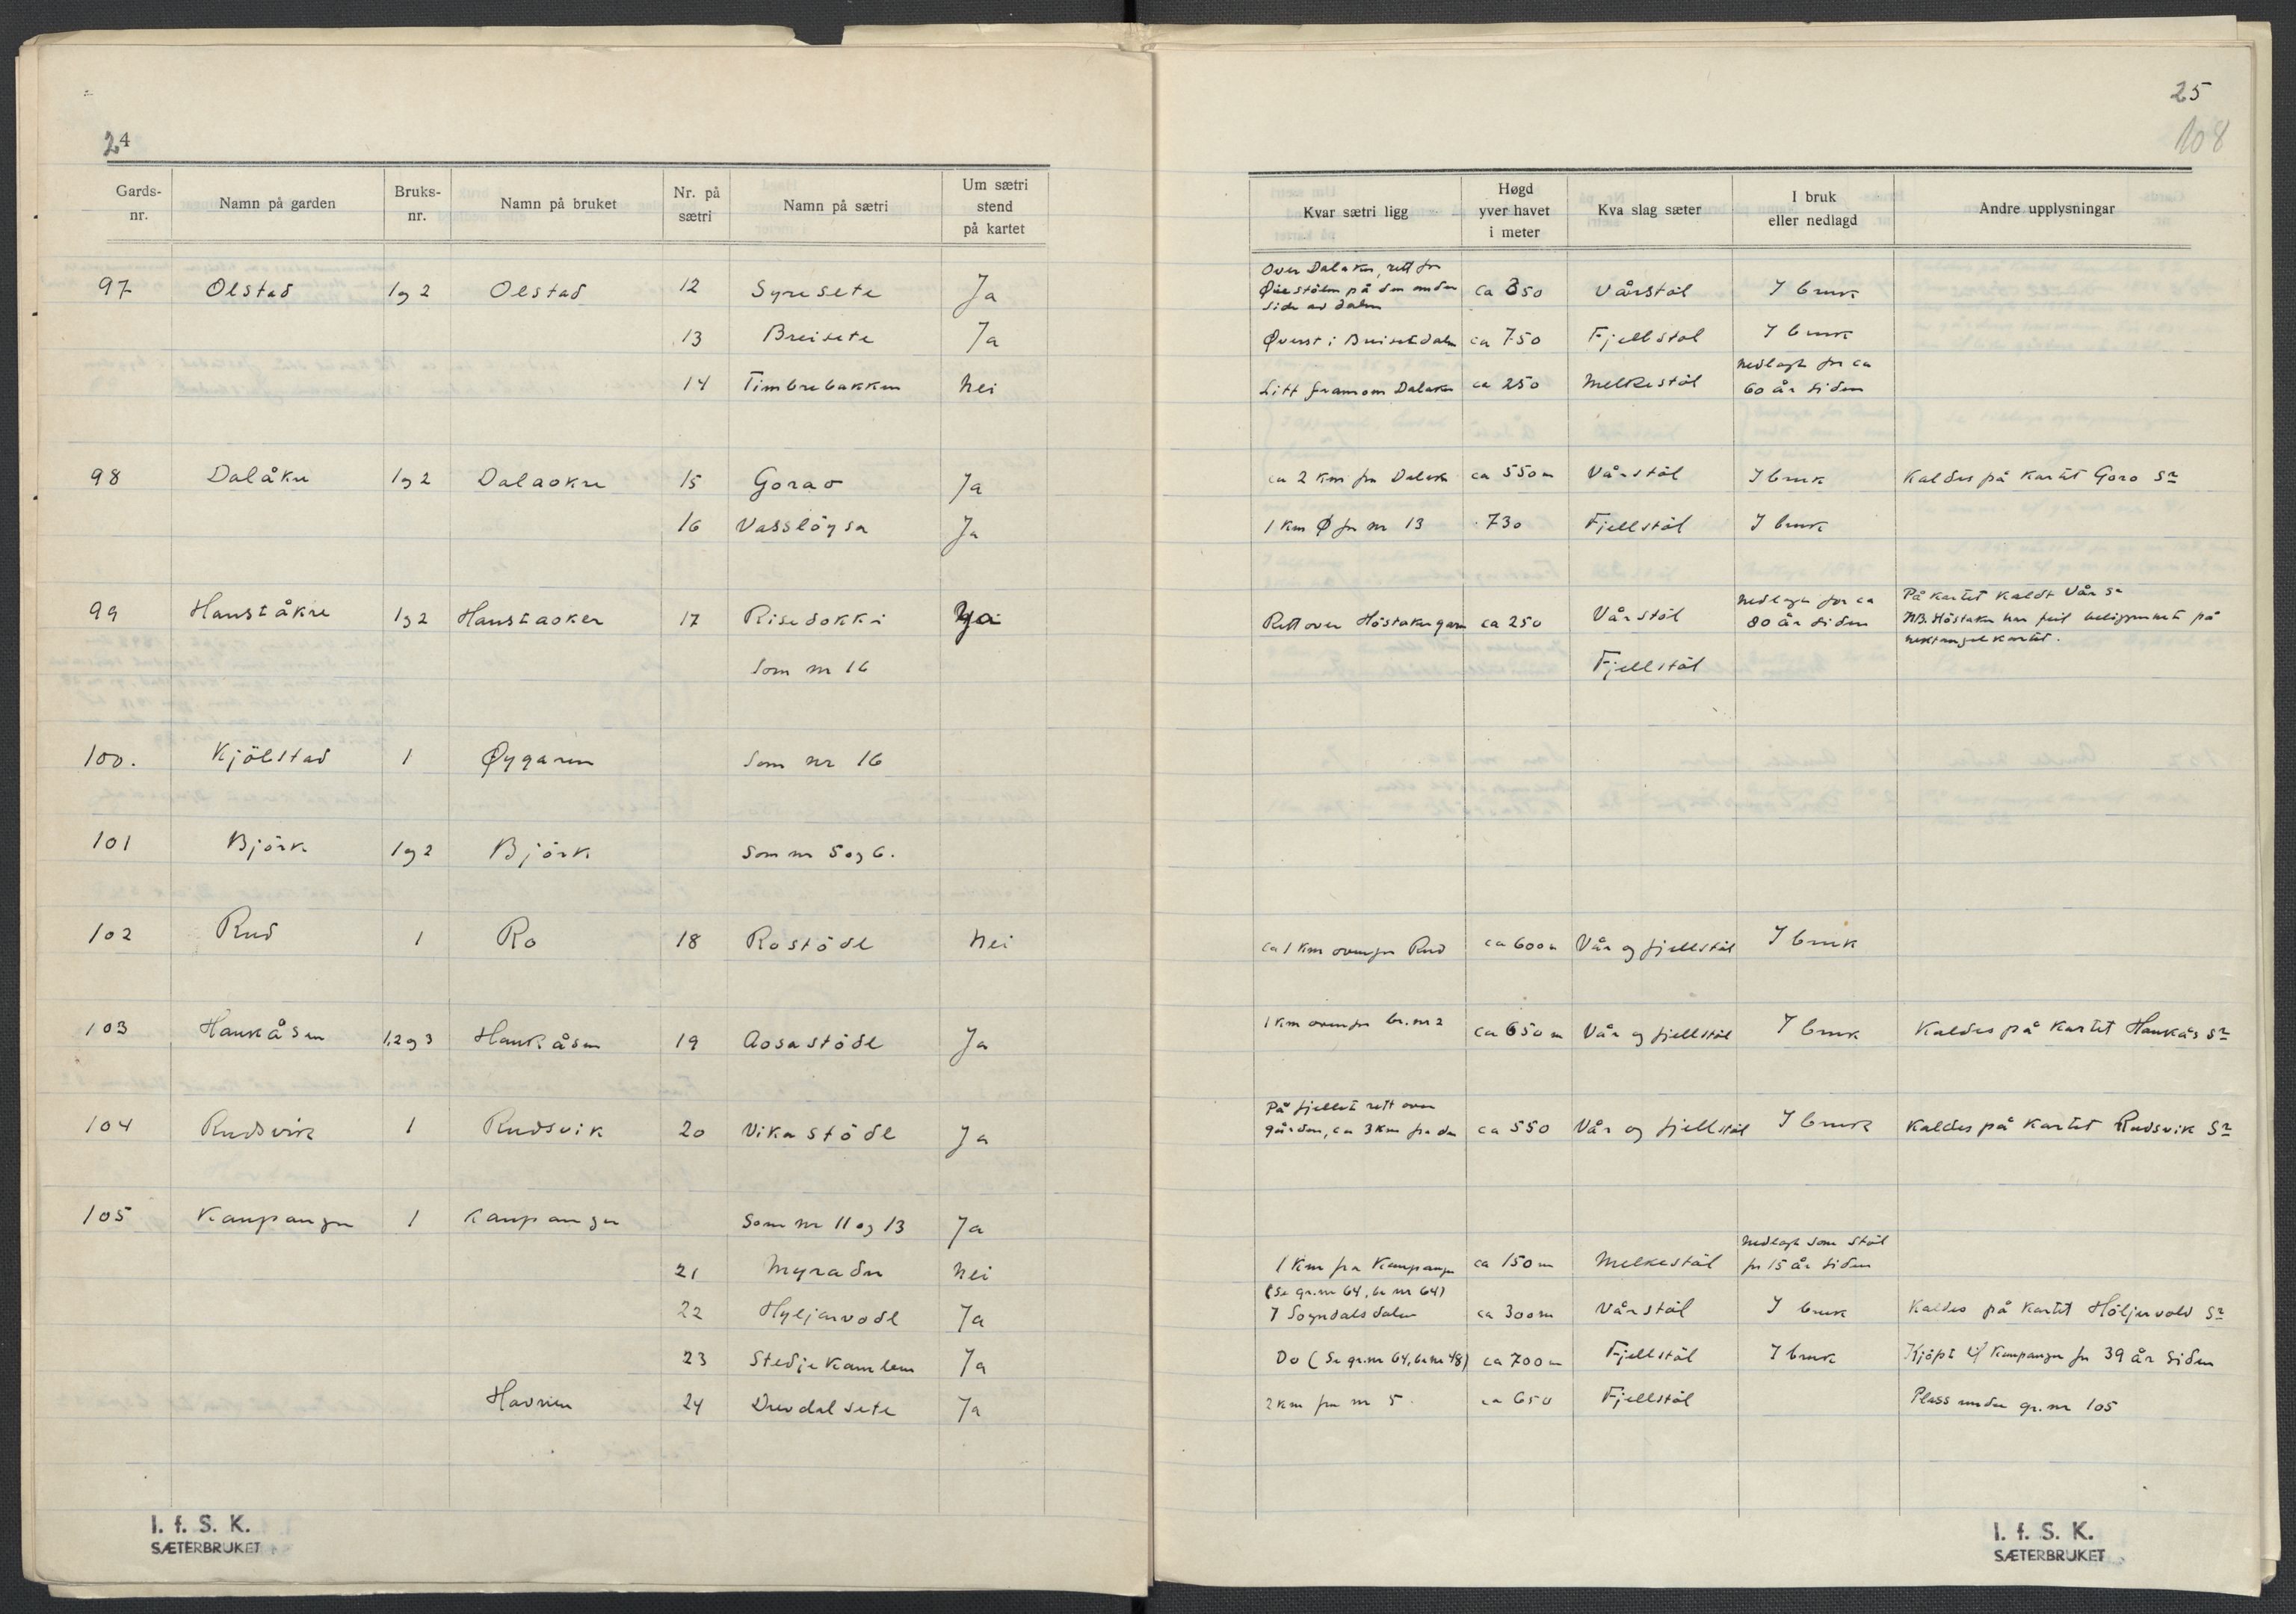 24
Gards-nr. Namn på garden Bruks-nr. Namn på bruket Nr. på sætri Namn på sætri Um sætri stend på kartet
97 Olstad 1 og 2 Olstad 12 Syresete Ja
13 Breisete Ja
14 Timbrebakken Nei
98 Dalåkre 1 og 2 Dalaokre 15 Gorao Ja
16 Vasslöysa Ja
99 Haustakre 1 og 2 Haustaoker 17 Risedokki Ja
Som nr 16
100. Kjölstad 1 Øygaren Som nr 16
101 Björk 1 og 2 Björk Som nr 5 og 6.
102 Rud 1 Ro 18 Rostödl Nei
103 Haukåsen 1,2 og 3 Haukåsen 19 Aosastödl Ja
104 Rudsvik 1 Rudsvik 20 Vikastödl Ja
105 Kaupanger 1 Kaupanger Som nr 11 og 13 Ja
21 Myradn Nei
22 Hyljarvodl Ja
23 Stedjekamben Ja
Havnen 24 Drevdalsete Ja
I. f. S. K.
SÆTERBRUKET
25
108
Kvar sætri ligg Høgd yver havet i meter Kva slag sæter I bruk eller nedlagd Andre upplysningar
Over Dalaker, rett for
Øiestölen på den andre ca 350 Vårstöl I bruk
side av dalen
Øverst i Breisetdalen ca 750 Fjellstöl I bruk
Nedlagt for ca
Litt framom Dalaker ca 250 Melkestöl 60 år siden
ca 2 km fra Dalaker ca 550 m Vårstöl I bruk Kaldes på kartet Goro Sr
1 km Ø for nr 13 730 Fjellstöl I bruk
Nedlagt for ca På kartet kaldt Vår Sr
Rett over Höstakergarden ca 250 Vårstöl 80 år siden NB. Höstaker har feil beliggenhet på
rektangelkartet.
Fjellstöl
ca 1 km ovenfor Rud ca 600 m Vår og fjellstöl I bruk
1 km ovenfor br.nr 2 ca 650 m Vår og fjellstöl I bruk Kaldes på kartet Haukås Sr
På fjellet rett over
gården, ca 3 km fra den ca 550 Vår og fjellstöl I bruk Kaldes på kartet Rudsvik Sr
Nedlagt som stöl
1 km fra Kaupanger ca 150 m Melkestöl for 15 år siden
(Se gr.nr 64, br nr 64)
I Sogndalsdalen ca 300 m Vårstöl I bruk Kaldes på kartet Höljervold Sr
Do (Se gr.nr 64, br nr 48) ca 700 m Fjellstöl I bruk Kjöpt til Kaupanger for 39 år siden
2 km fra nr 5 ca 650 Fjellstöl Plass under gr.nr 105
I. f. S. K.
SÆTERBRUKET